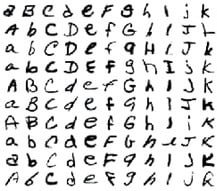 a B C d e F g h I j k
A b C D e f G h I J k
a b C D e f g H I J k
a b c D E F g h I J K
A B C d e F G h I J K
a B C d e f G h I J h
A B C d e f G h I i K
a b C d e F G h e J K
a b C d e F g h I J K
A b C d e F G h I J K